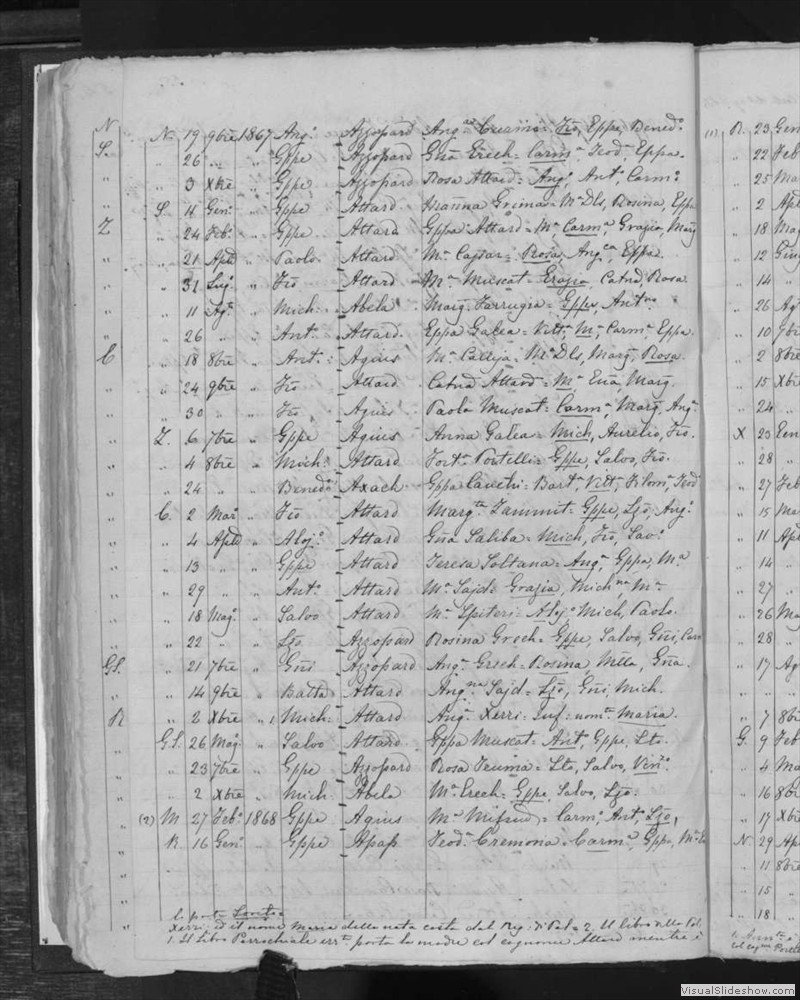 N
N. 19 9bre 1867 Ang.o Azzopard Ang.a Cusmin = Fco, Gppe, Bened.a
S. " 26 " " Gppe Azzopard Giia Grech = Carm.a Teod. Gppa.
" " 3 Xbre " Gppe Azzopard Rosa Attard = Ang.o, Ant.o, Carm.o
" S. 4 Gen.o " Gppe Attard Marina Grima = M.a Dls, Rosina, Gppa
Z " 24 Feb.o " Gppe Attard Gppa Attard = M.a Carm.a Grazia, Marg
" " 21 Aple " Paolo Attard M.a Cassar = Rosa, Ang.ca, Gppa.
" " 31 Lug.o " Fco Attard M.a Muscat = Grazia, Catna, Rosa
" " 11 Ag.o " Mich. Abela Marg. Farrugia = Gppe, Ant.no
" " 26 " " Ant.o Attard Gppa Galea = Vitt.a M.a Carm.a Gppa.
C " 18 8bre " Ant.o Agius M.a Calleja = M.a Dls, Marg, Rosa.
" " 24 9bre " Fco Attard Catna Attard = M.a Marg.
" " 30 " " Fco Agius Paola Muscat = Carm.a, Marg, Ang.a
" Z. 6 7bre " Gppe Agius Anna Galea = Mich, Aurelio, Fco.
" " 4 8bre " Mich. Attard Fort.a Portelli = Gppe, Salvo, Fco.
" " 24 " " Bened.o Axach Gppa Bart.a Vitt.a Filom.a Teod
" C. 2 Mar.o " Fco Attard Marg.ta Zammit = Gppe, Lzo, Ang.o
" " 4 Aple " Aloj.o Attard Giia Saliba = Mich, Fco, Sav.o
" " 13 " " Gppe Attard Teresa Soltana = Ang.a, Gppa, M.a
" " 29 " " Ant.o Attard M.a Sajd = Grazia, Mich.na M.a
" " 18 Mag.o " Salvo Attard M.a Spiteri = Aloj.o Mich, Paolo.
" " 22 " " Lzo Azzopard Rosina Grech = Gppe, Salvo, Giii, Carm
GS. " 21 7bre " Giii Azzopard Ang.a Grech = Rosina, Giia.
" " 14 9bre " Batta Attard Ang.na Sajd = Lzo, Giii, Mich.
R " 2 Xbre " 1 Mich. Attard Ang.a Xerri = Inf = nom.ta Maria.
" G.S. 26 Mag.o " Salvo Attard Gppa Muscat = Ant, Gppe, Lto.
" " 23 7bre " Gppe Azzopard Rosa Teuma = Lto, Salvo, Vin.o
" " 2 Xbre " Mich. Abela M.a Grech = Gppe, Salvo, Lzo.
" (2) M 27 Feb.o 1868 Gppe Agius M.a Mifsud = Carm.o Ant, Lzo,
" R. 16 Gen.o " Gppe Apap Teod.a Cremona = Carm.a, Gppa, M.a
il porta Loreto
Xerri ed il nome Maria della nata costa dal Reg. di Pal = 2. Il libro della
1. Il Libro Parrochiale err.te porta la madre col cognome Attard mentre è
(1) R. 23 Gen
" 22 Feb
" 25 Ma
" 2 Apl
" 18 Mag
" 12 Giug
" 14 "
" 26 Ag
" 10 7bre
" 2 8bre
" 15 Xbre
" 24 "
X 23 Gen
" 28 "
" 27 Feb
" 15 Ma
" 11 Apl
" 14 "
" 27 "
" 26 Ma
" 28 "
" 17 Ag
" " "
" 7 8bre
G. 9 Feb
" 4 Ma
" 16 8bre
" 17 Xbre
N. 29 Apl
" 11 8bre
" 15 "
" 18 "
VisualSlideshow.com